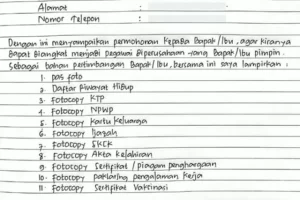 Alamat :
Nomor Telepon :
Dengan ini menyampaikan permohonan kepada Bapak/Ibu, agar kiranya
dapat diangkat menjadi pegawai diperusahaan yang Bapak/Ibu pimpin.
Sebagai bahan pertimbangan Bapak/Ibu, bersama ini saya lampirkan :
1. pas foto
2. Daftar Riwayat Hidup
3. Fotocopy KTP
4. Fotocopy NPWP
5. Fotocopy Kartu Keluarga
6. Fotocopy Ijazah
7. Fotocopy SKCK
8. Fotocopy Akta Kelahiran
9. Fotocopy Sertifikat / piagam penghargaan
10. Fotocopy paklaring pengalaman kerja
11. Fotocopy Sertifikat Vaksinasi